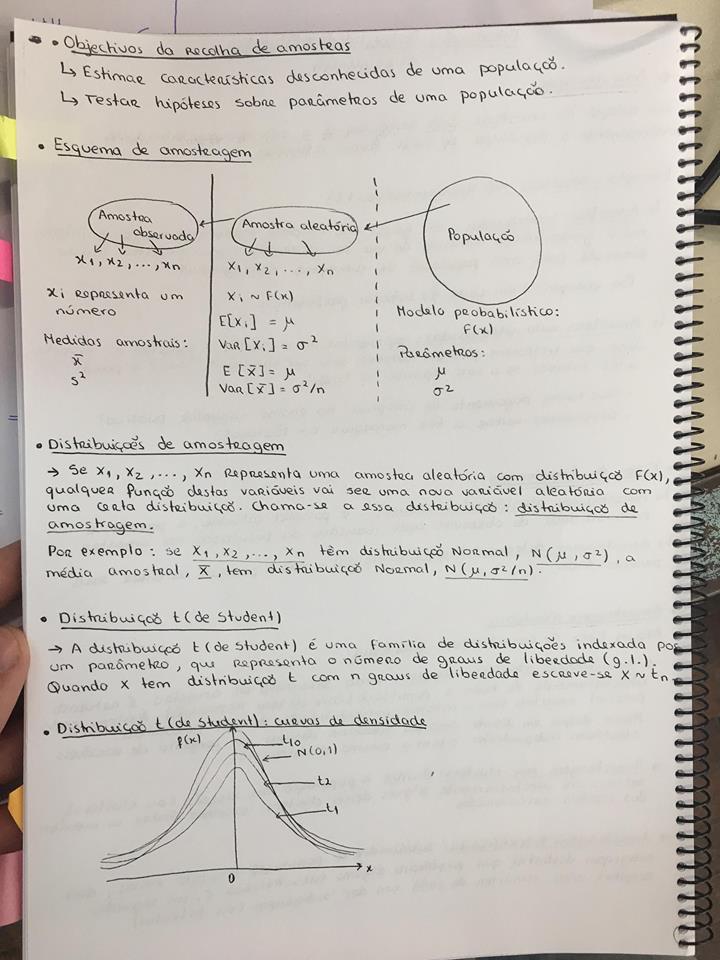 • Objectivos da recolha de amostras
↳ Estimar características desconhecidas de uma população.
↳ Testar hipóteses sobre parâmetros de uma população.
• Esquema de amostragem
Amostra observada
x1, x2, ..., xn
xi representa um
número
Medidas amostrais:
x̄
s²
Amostra aleatória
X1, X2, ..., Xn
Xi ~ F(x)
E[Xi] = μ
Var[Xi] = σ²
E[X̄] = μ
Var[X̄] = σ²/n
População
Modelo probabilístico:
F(x)
Parâmetros:
μ
σ²
• Distribuições de amostragem
→ Se X1, X2, ..., Xn representa uma amostra aleatória com distribuição F(x),
qualquer função destas variáveis vai ser uma nova variável aleatória com
uma certa distribuição. Chama-se a essa distribuição: distribuição de
amostragem.
Por exemplo: se X1, X2, ..., Xn têm distribuição Normal, N(μ, σ²), a
média amostral, X̄, tem distribuição Normal, N(μ, σ²/n).
• Distribuição t (de Student)
→ A distribuição t (de Student) é uma família de distribuições indexada por
um parâmetro, que representa o número de graus de liberdade (g.l.).
Quando X tem distribuição t com n graus de liberdade escreve-se X ~ tn.
• Distribuição t (de Student): curvas de densidade
f(x)
t10
N(0,1)
t2
t1
x
0